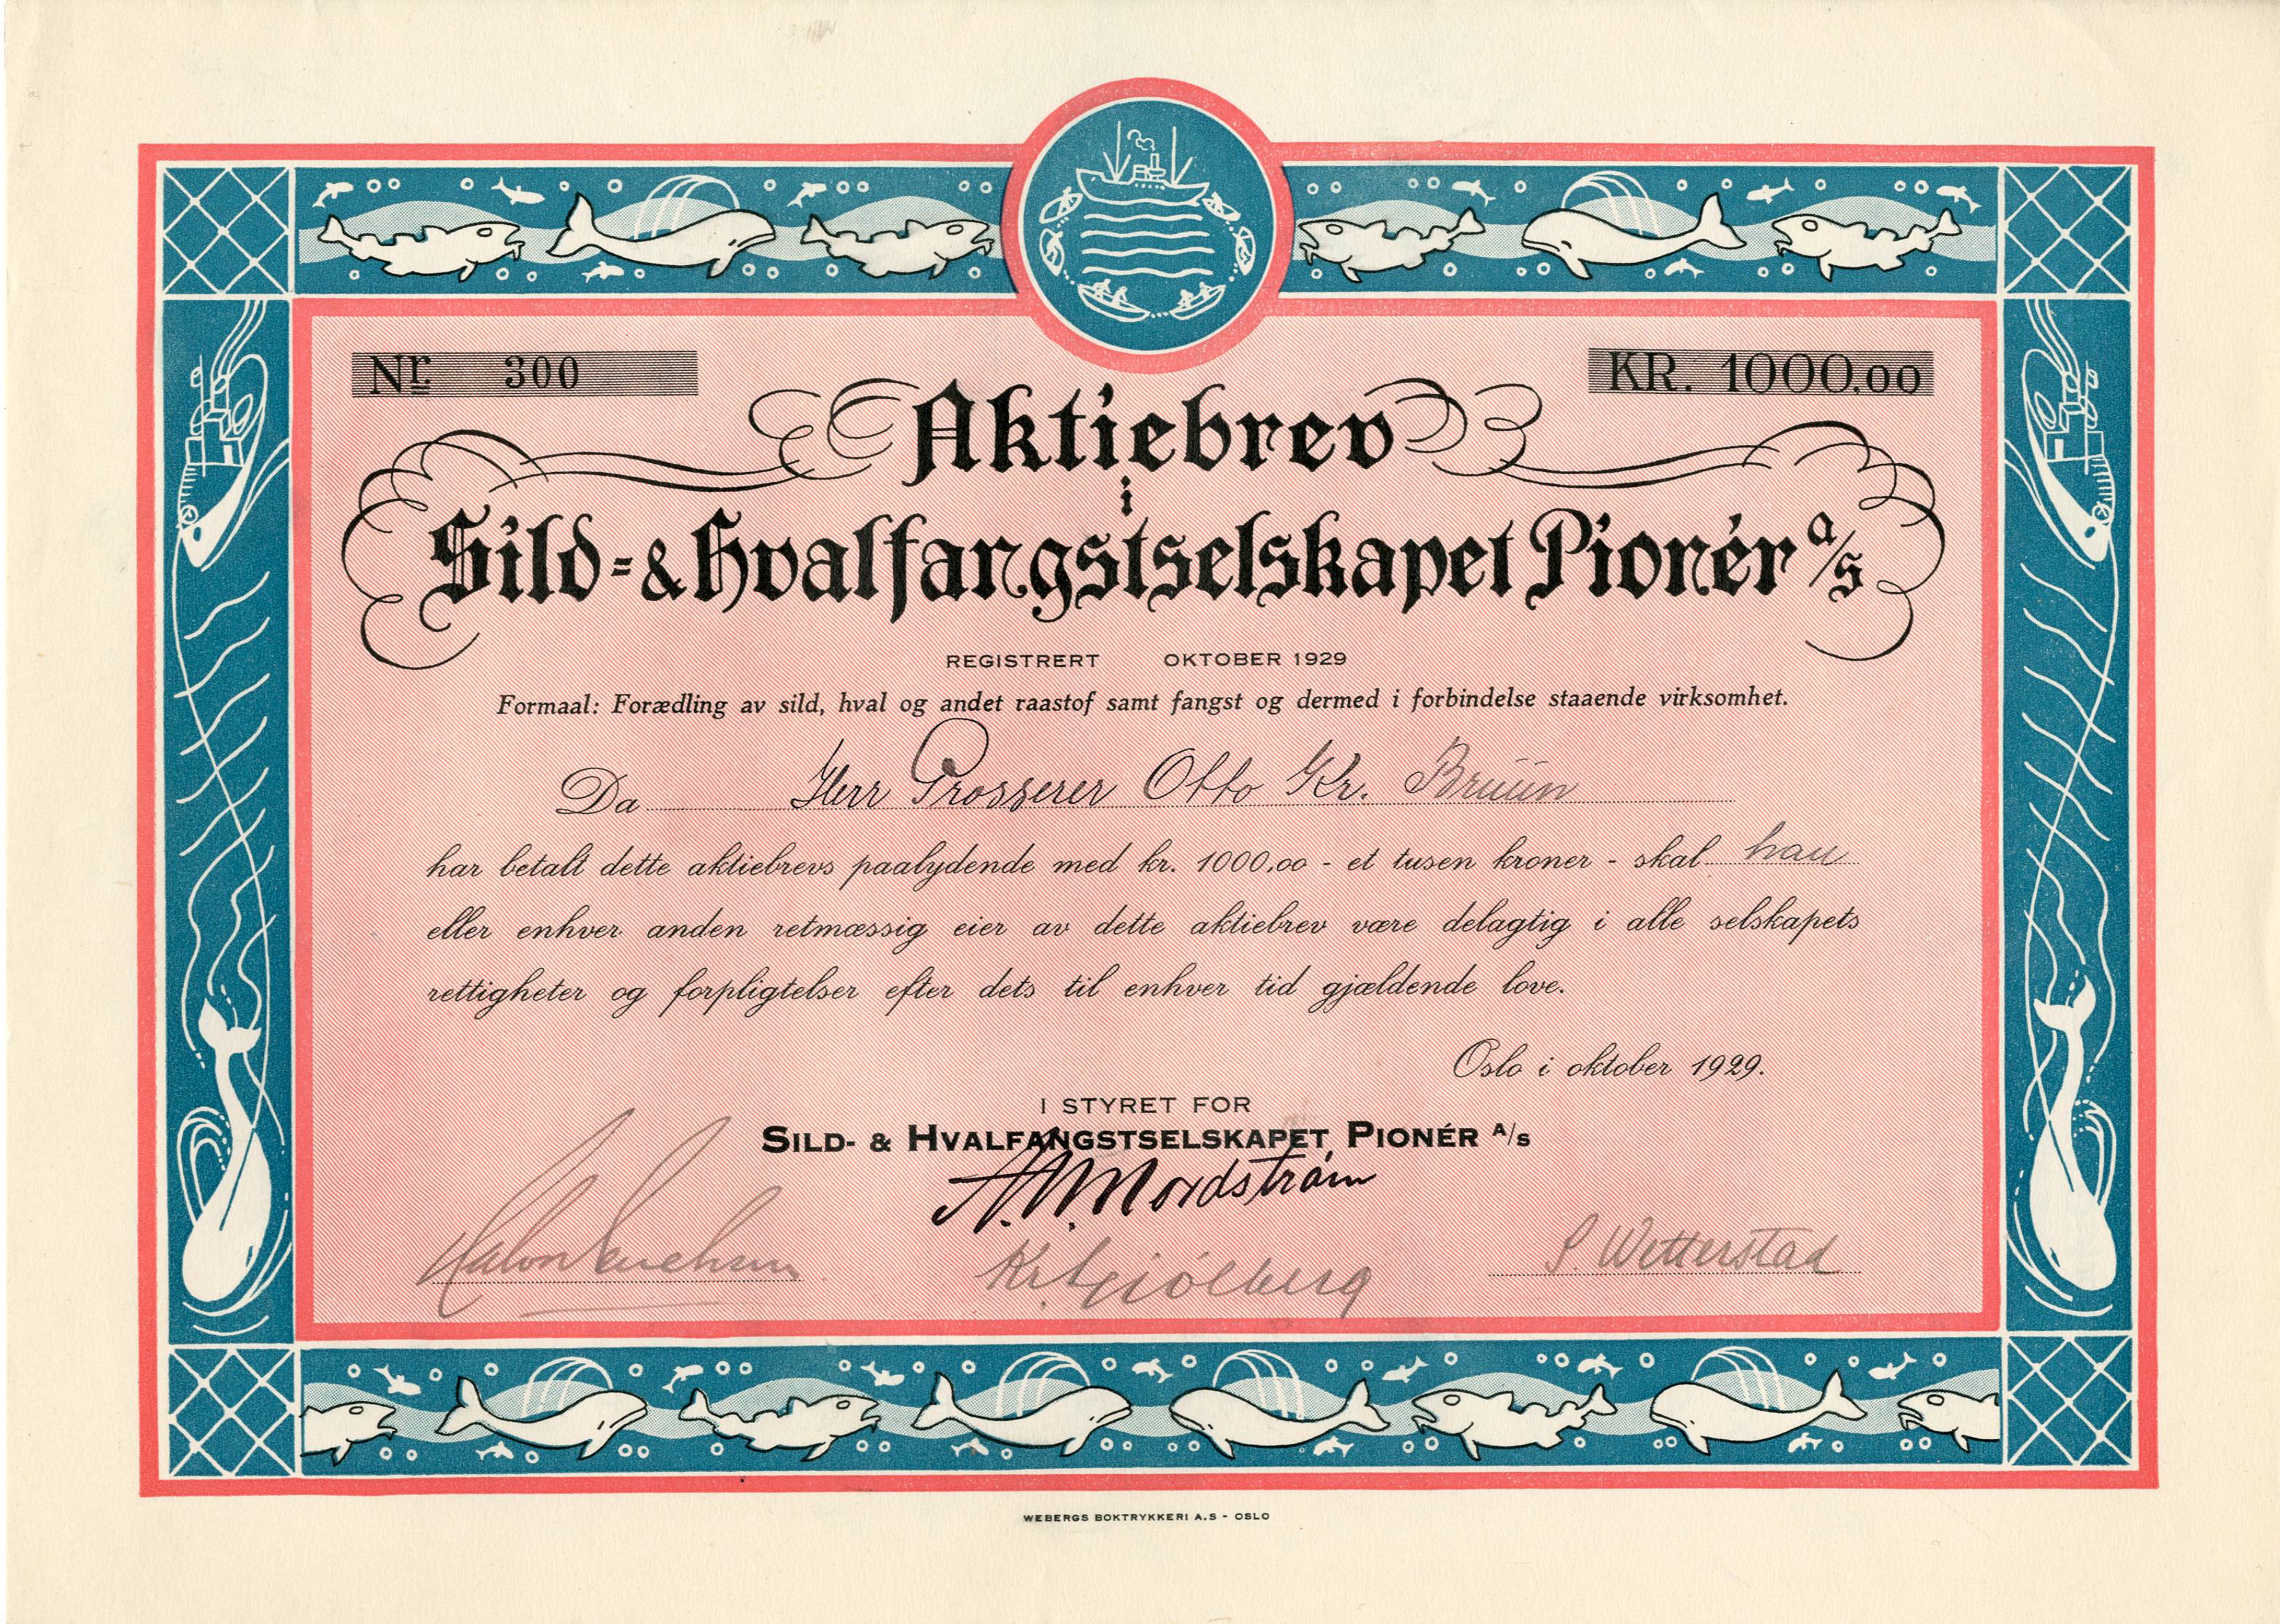 Nr. 300
KR. 1000,00
Aktiebrev
i
Sild-& Hvalfangstselskapet Pionér A/S
REGISTRERT OKTOBER 1929
Formaal: Forædling av sild, hval og andet raastof samt fangst og dermed i forbindelse staaende virksomhet.
Da Herr Grosserer Otto Kr. Bruun
har betalt dette aktiebrevs paalydende med kr. 1000,00 - et tusen kroner - skal han
eller enhver anden retmæssig eier av dette aktiebrev være delagtig i alle selskapets
rettigheter og forpligtelser efter dets til enhver tid gjældende love.
Oslo i oktober 1929.
I STYRET FOR
SILD- & HVALFANGSTSELSKAPET PIONÉR A/S
Nordstrøm
Kr. Gjølberg
S. Wetterstad
WEBERGS BOKTRYKKERI A.S - OSLO